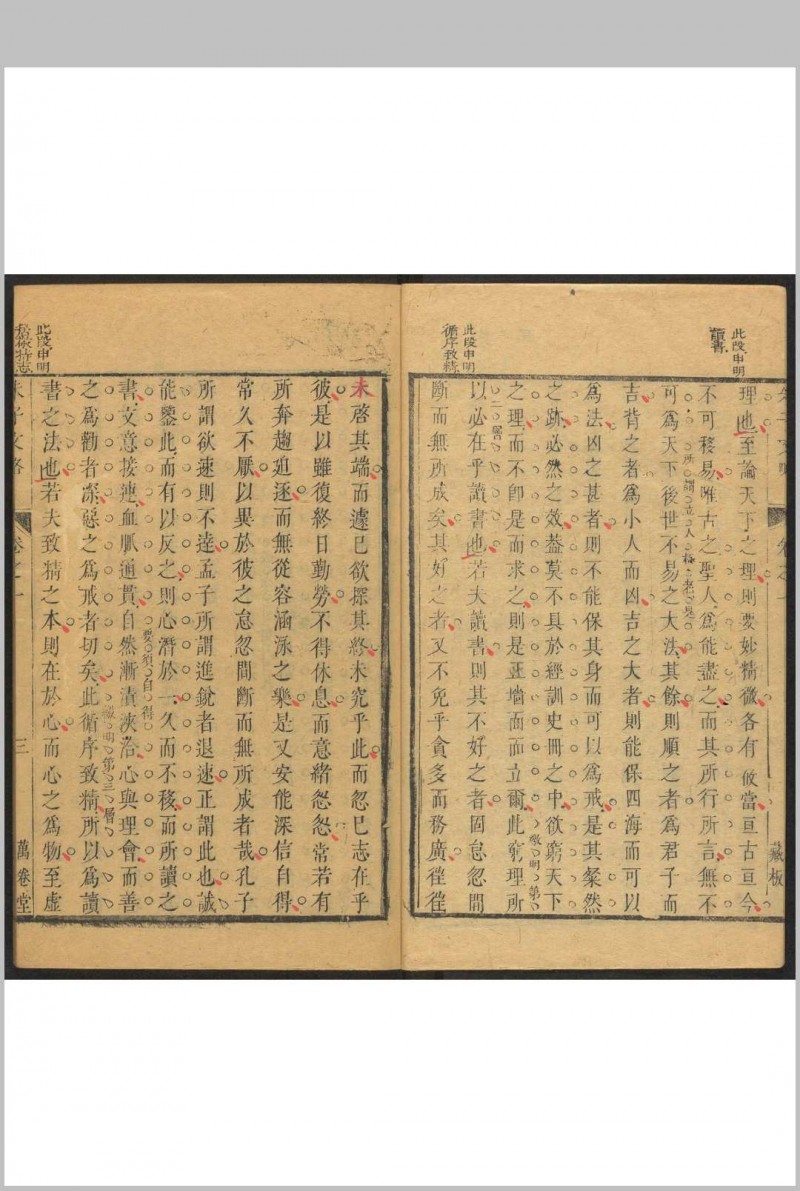 此段申明
讀書
藏板
理也至論天下之理則要妙精微各有攸當亘古亘今
不可移易唯古之聖人爲能盡之而其所行所言無不
所謂立人極
可爲天下後世不易之大法其餘則順之者爲君子而
吉背之者爲小人而凶吉之大者則能保四海而可以
爲法凶之甚者則不能保其身而可以爲戒是其粲然
之跡必然之效葢莫不具於經訓史冊之中欲窮天下
之理而不卽是而求之則是正墻面而立爾此窮理所
繳明第
二層
此段申明
循序致精
以必在乎讀書也若夫讀書則其不好之者固怠忽間
斷而無所成矣其好之者又不免乎貪多而務廣徃徃
未啓其端而遽已欲探其終未究乎此而忽已志在乎
彼是以雖復終日勤勞不得休息而意緒怱怱常若有
所奔趨迫逐而無從容涵泳之樂是又安能深信自得
常久不厭以異於彼之怠忽間斷而無所成者哉孔子
所謂欲速則不達孟子所謂進銳者退速正謂此也誠
能鑒此而有以反之則心濳於一久而不移而所讀之
要須自得
書文意接連血脈通貫自然漸漬浹洽心與理會而善
之爲勸者深惡之爲戒者切矣此循序致精所以爲讀
繳明第三層
書之法也若夫致精之本則在於心而心之爲物至虛
此段申明
居敬持志
朱子文畧
卷之一
三
萬卷堂